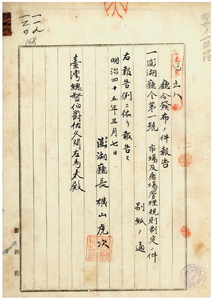 廳令發布ノ件報告
一澎湖廳令第一號 市場及屠場管理規則制定ノ件
別紙ノ通
右報告例ニ依リ報告ス
明治四十五年三月七日
澎湖廳長 橫山虎次
臺灣總督伯爵佐久間左馬太殿